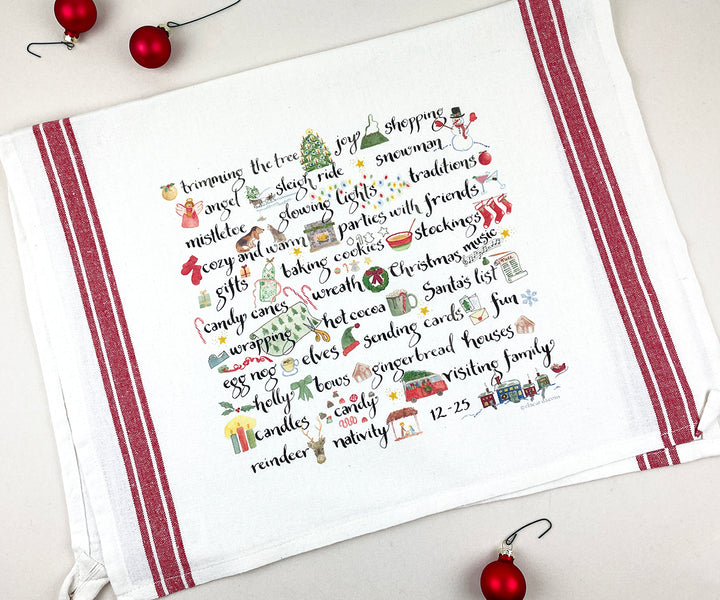 trimming the tree joy shopping
angel sleigh ride snowman
mistletoe glowing lights traditions
cozy and warm parties with friends
gifts baking cookies stockings
candy canes wreath Christmas music
wrapping hot cocoa Santa's list
egg nog elves sending cards fun
holly bows gingerbread houses
candles candy visiting family
reindeer nativity 12-25